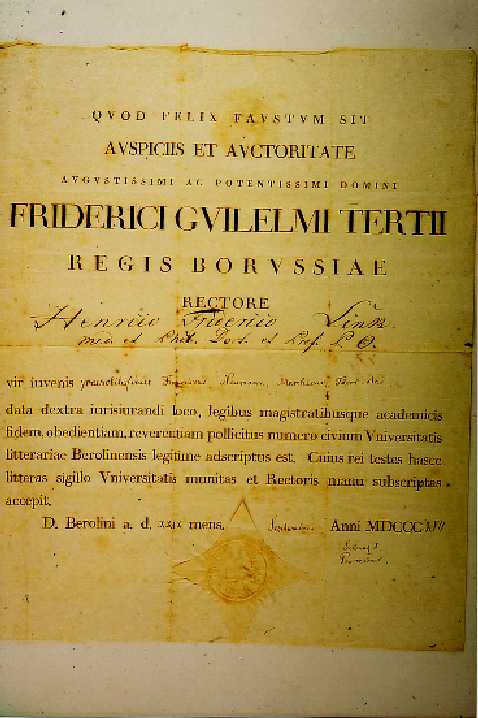 QVOD FELIX FAVSTVM SIT
AVSPICIIS ET AVCTORITATE
AVGVSTISSIMI AC POTENTISSIMI DOMINI
FRIDERICI GVILELMI TERTII
REGIS BORVSSIAE
RECTORE
Henrico Friderico Link
Med. et Phil. Doct. et Prof. P. O.
vir iuvenis
data dextra iurisiurandi loco, legibus magistratibusque academicis
fidem, obedientiam, reverentiam pollicitus numero civium Vniversitatis
litterariae Berolinensis legitime adscriptus est. Cuius rei testes hasce
litteras sigillo Vniversitatis munitas et Rectoris manu subscriptas
accepit.
D. Berolini a. d. mens. Anni MDCCC